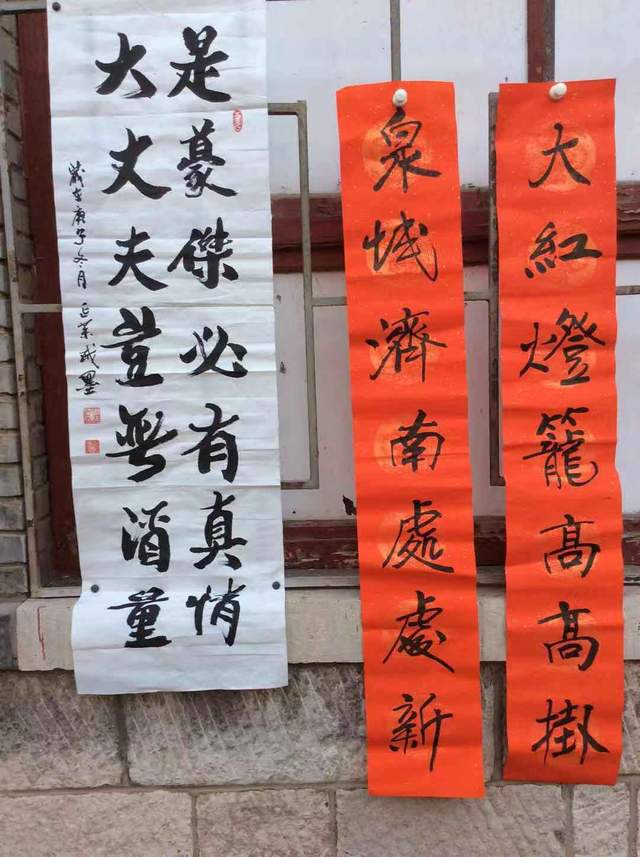 大紅燈籠高高掛
泉城濟南處處新
是豪傑必有真情
大丈夫豈無酒量
歲在庚子冬月 業戏墨